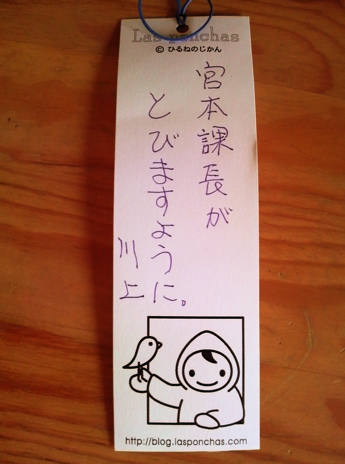 Las ponchas
© ひるねのじかん
宮本課長が
とびますように。
川上
http://blog.lasponchas.com